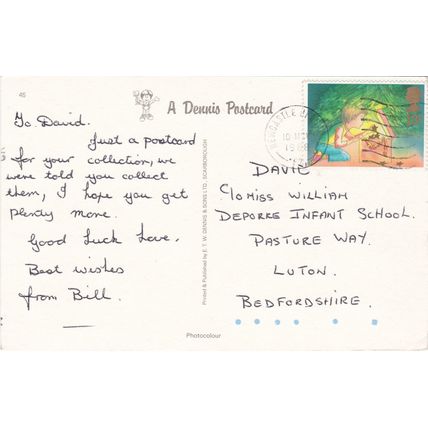 45
A Dennis Postcard
To David.
Just a postcard
for your collection, we
were told you collect
them, I hope you get
plenty more.
Good Luck Love,
Best wishes
from Bill.
Printed & Published by E. T. W. DENNIS & SONS LTD., SCARBOROUGH
Photocolour
DAVID
C/O MISS WILLIAM
DEPORRE INFANT SCHOOL.
PASTURE WAY.
LUTON.
BEDFORDSHIRE.